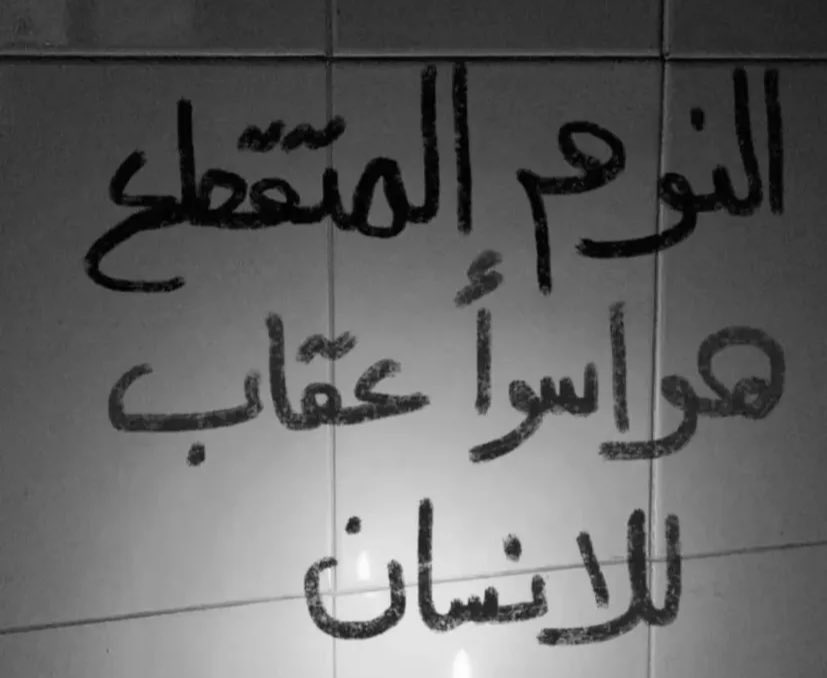 النوم المتقطع
هو اسوأ عقاب
للانسان